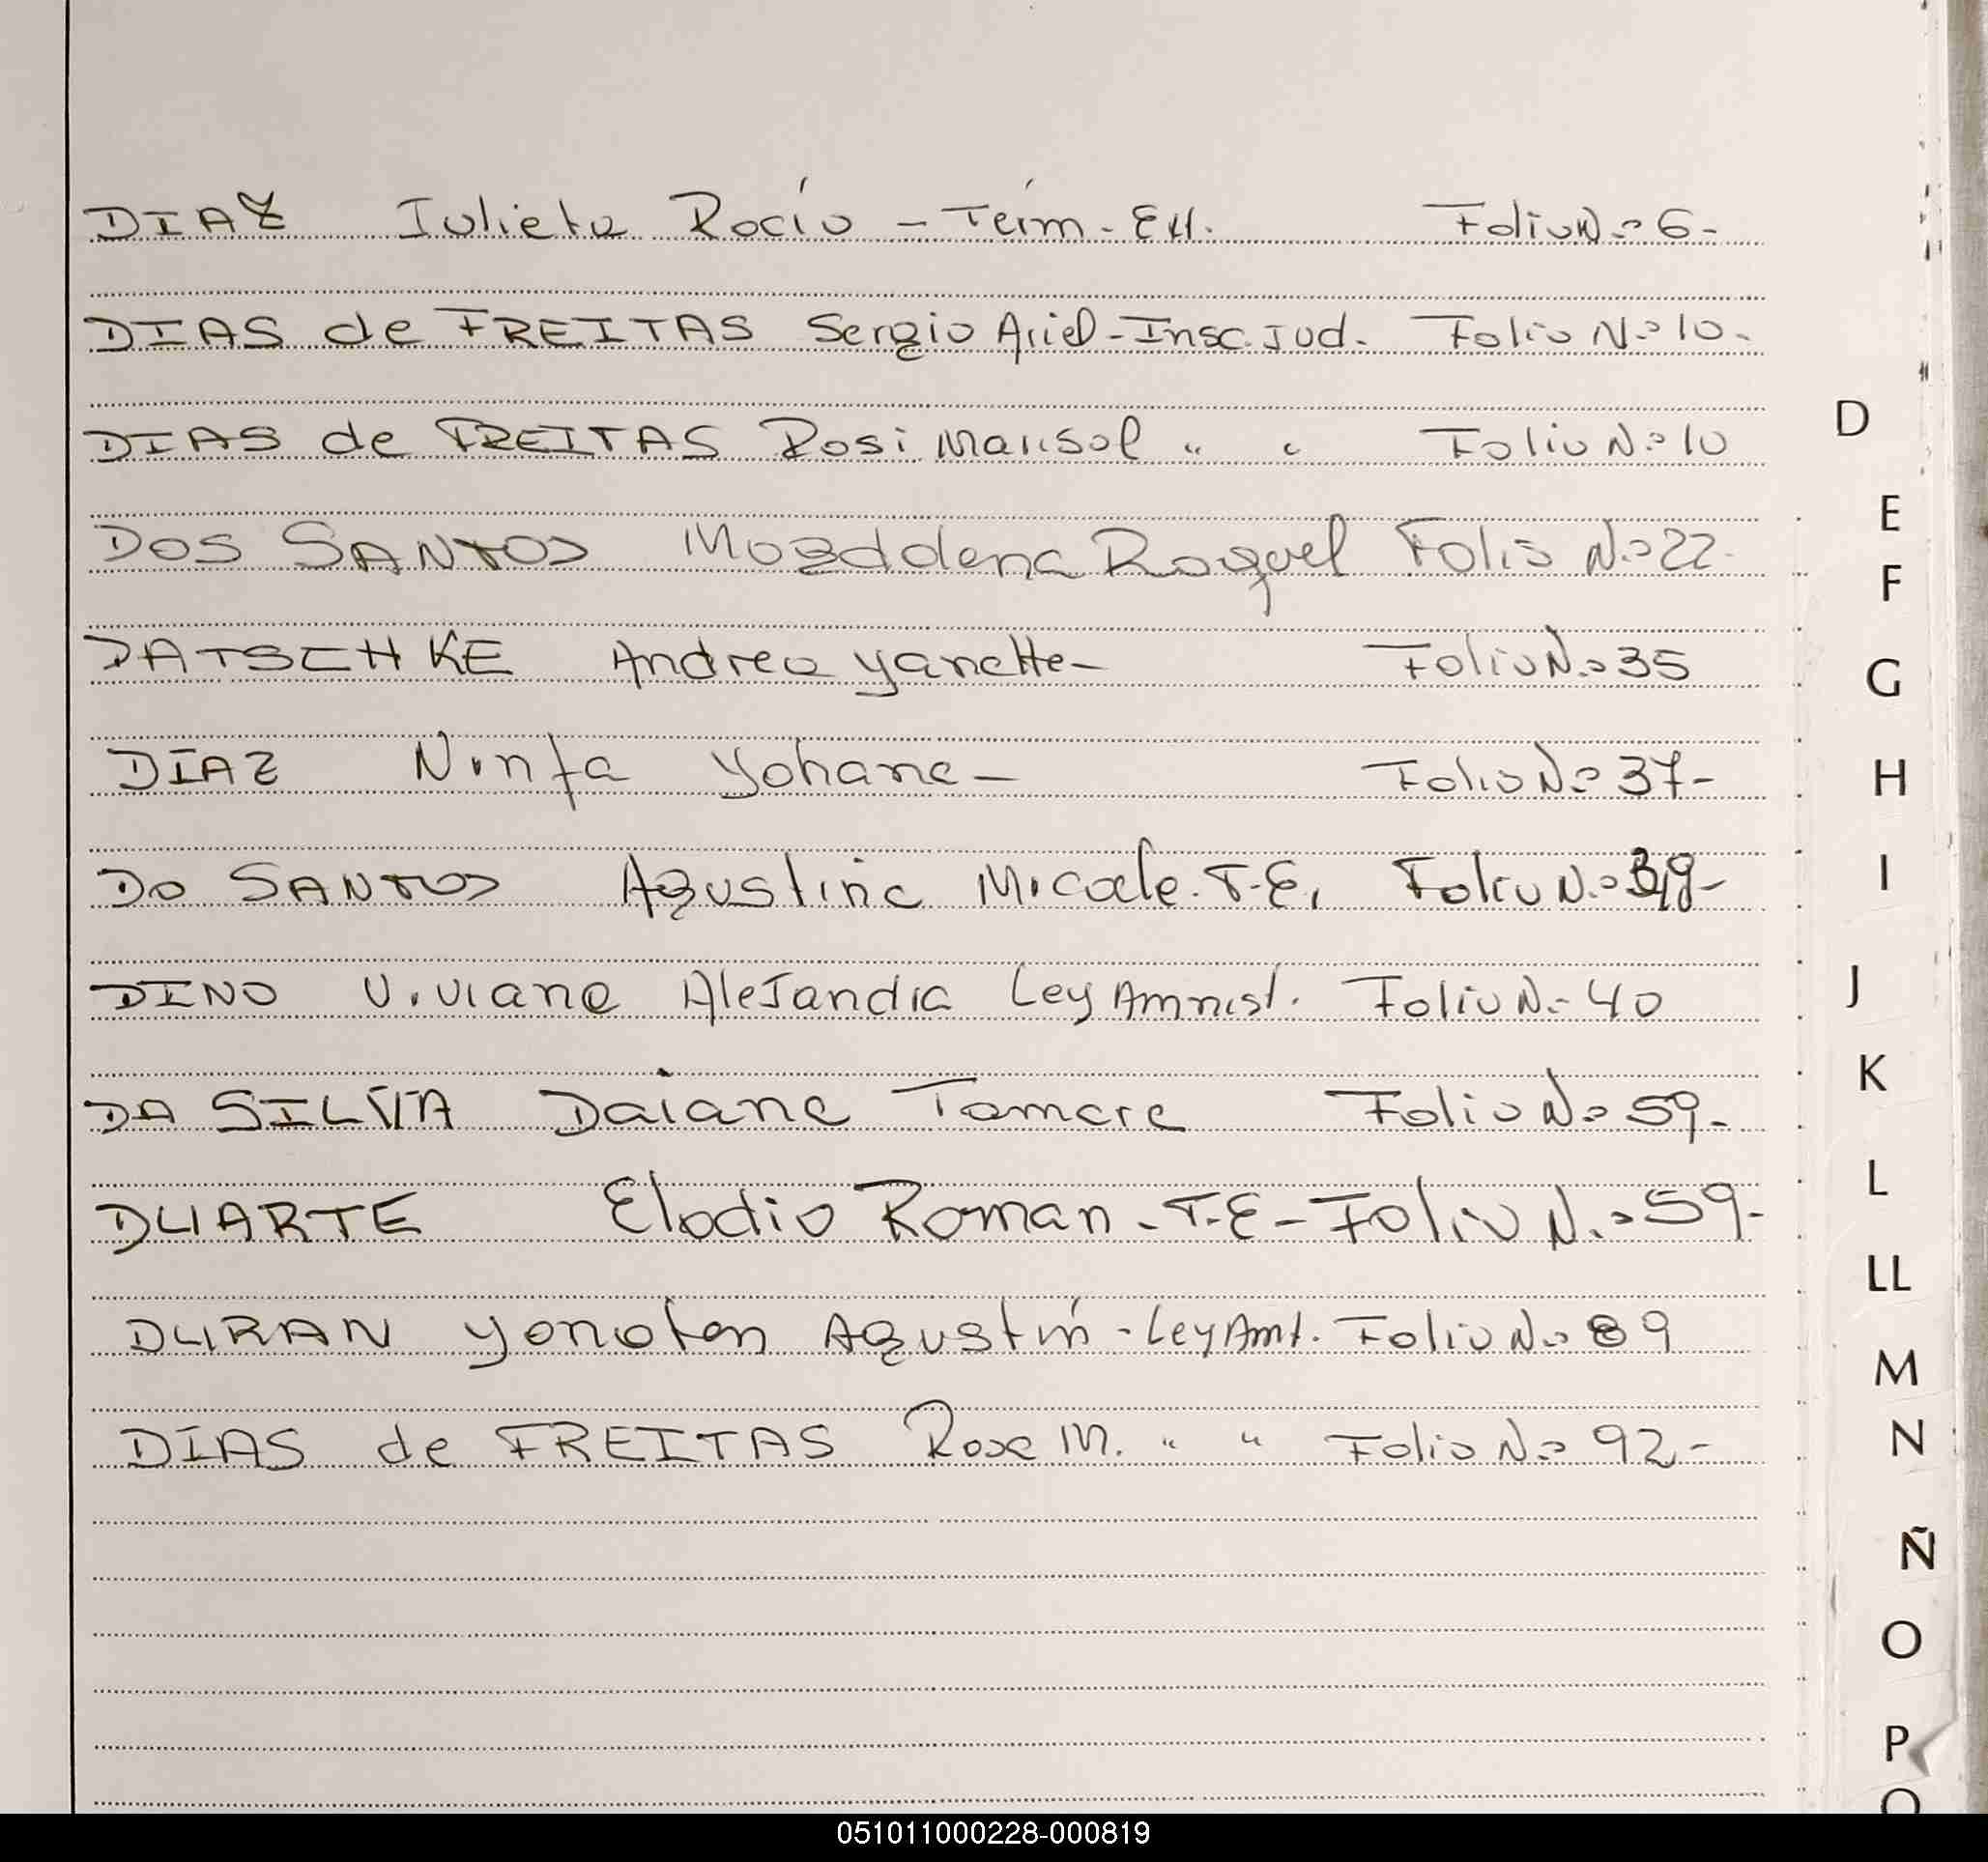 DIAZ Julieta Rocío - Térm. Ext. Folio N.º 6-
DIAS de FREITAS Sergio Ariel - Insc. Jud. Folio N.º 10-
DIAS de FREITAS Rosi Marisol " " Folio N.º 10
D
DOS SANTOS Magdalena Raquel Folio N.º 22-
E
F
DATSCHKE Andrea Yanette - Folio N.º 35
G
DIAZ Ninfa Yohana - Folio N.º 37-
H
DO SANTOS Agustina Micaela. T.E. Folio N.º
I
DINO Viviana Alejandra Ley Amnist. Folio N.º 40
J
K
DA SILVA Daiana Tamara Folio N.º 59-
L
DUARTE Elodio Roman - T.E - Folio N.º 59-
LL
DURAN Yonatan Agustín - Ley Amt. Folio N.º 89
M
DIAS de FREITAS Rosa M. " " Folio N.º 92-
N
Ñ
O
P
051011000228-000819